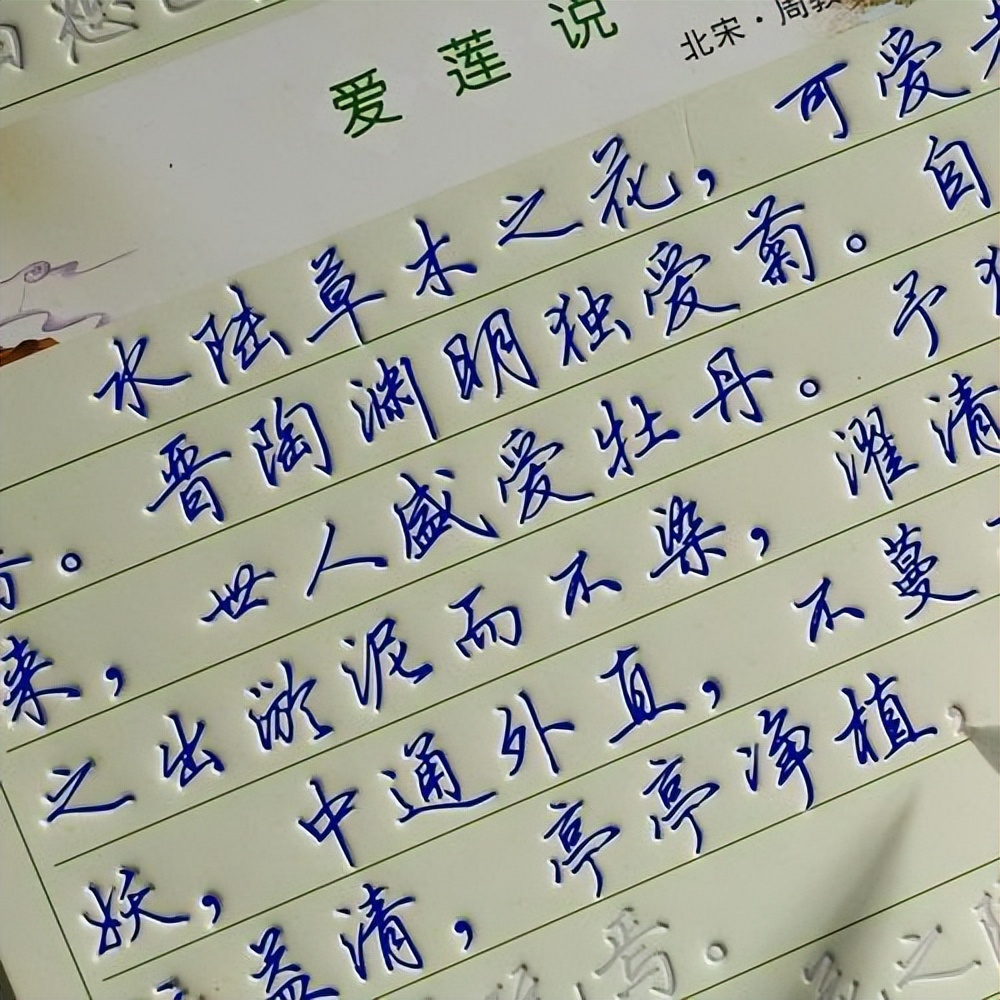 爱莲说
北宋·周敦
水陆草木之花，可爱者
。晋陶渊明独爱菊。自
来，世人盛爱牡丹。予独
之出淤泥而不染，濯清
妖，中通外直，不蔓
益清，亭亭净植。
焉。之